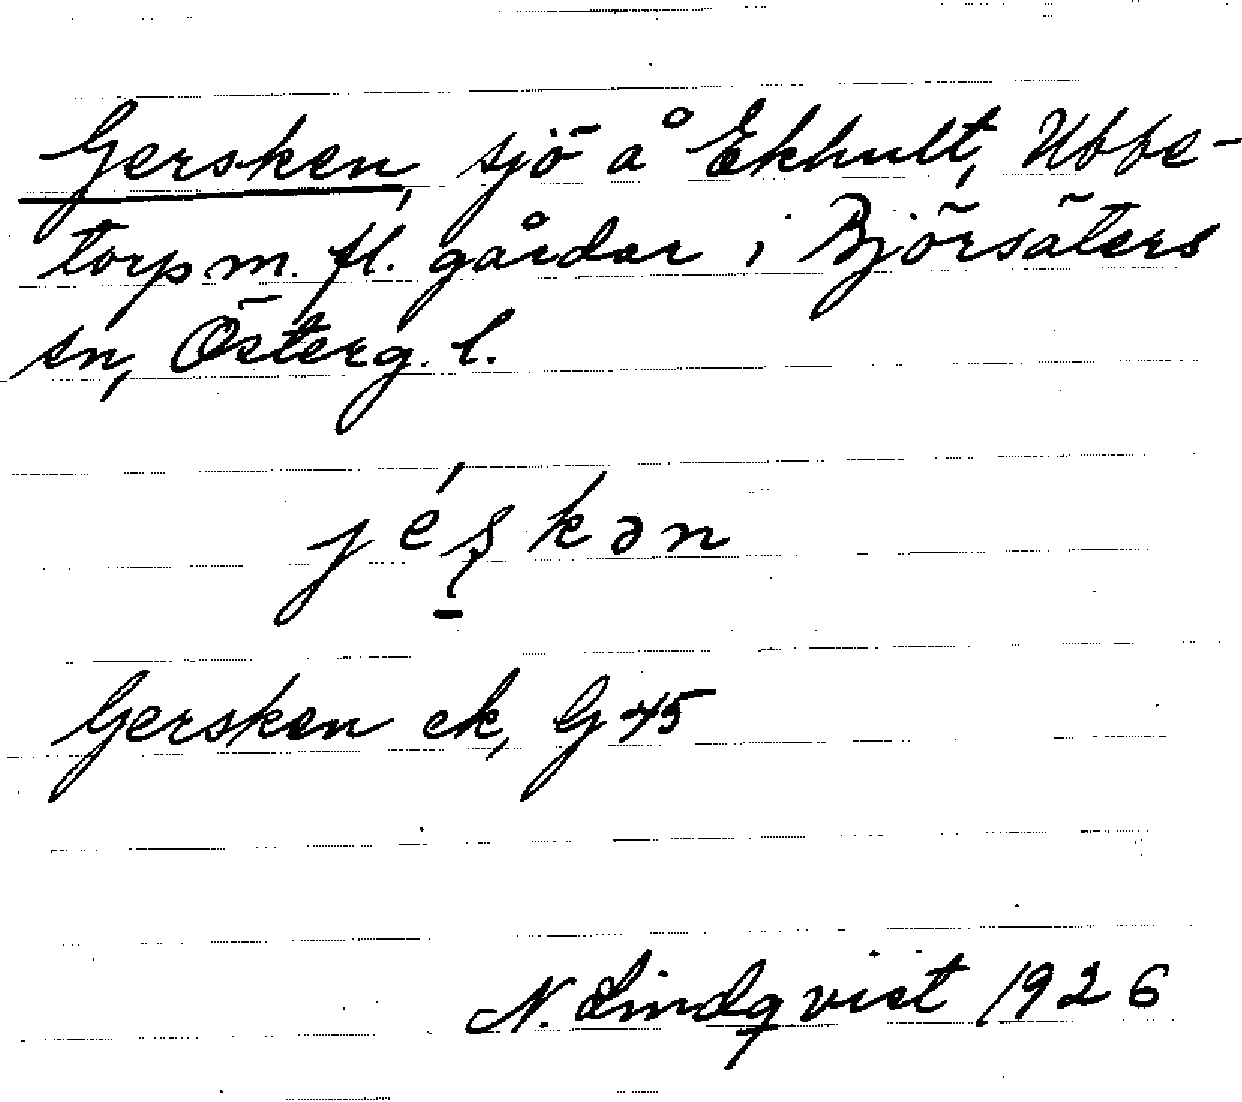 Gersken, sjö å Ekhult, Ubbe-
torp m. fl. gårdar i Björsäters
sn, Österg. l.
jéʂkən
Gersken ek, G 45
N. Lindqvist 1926